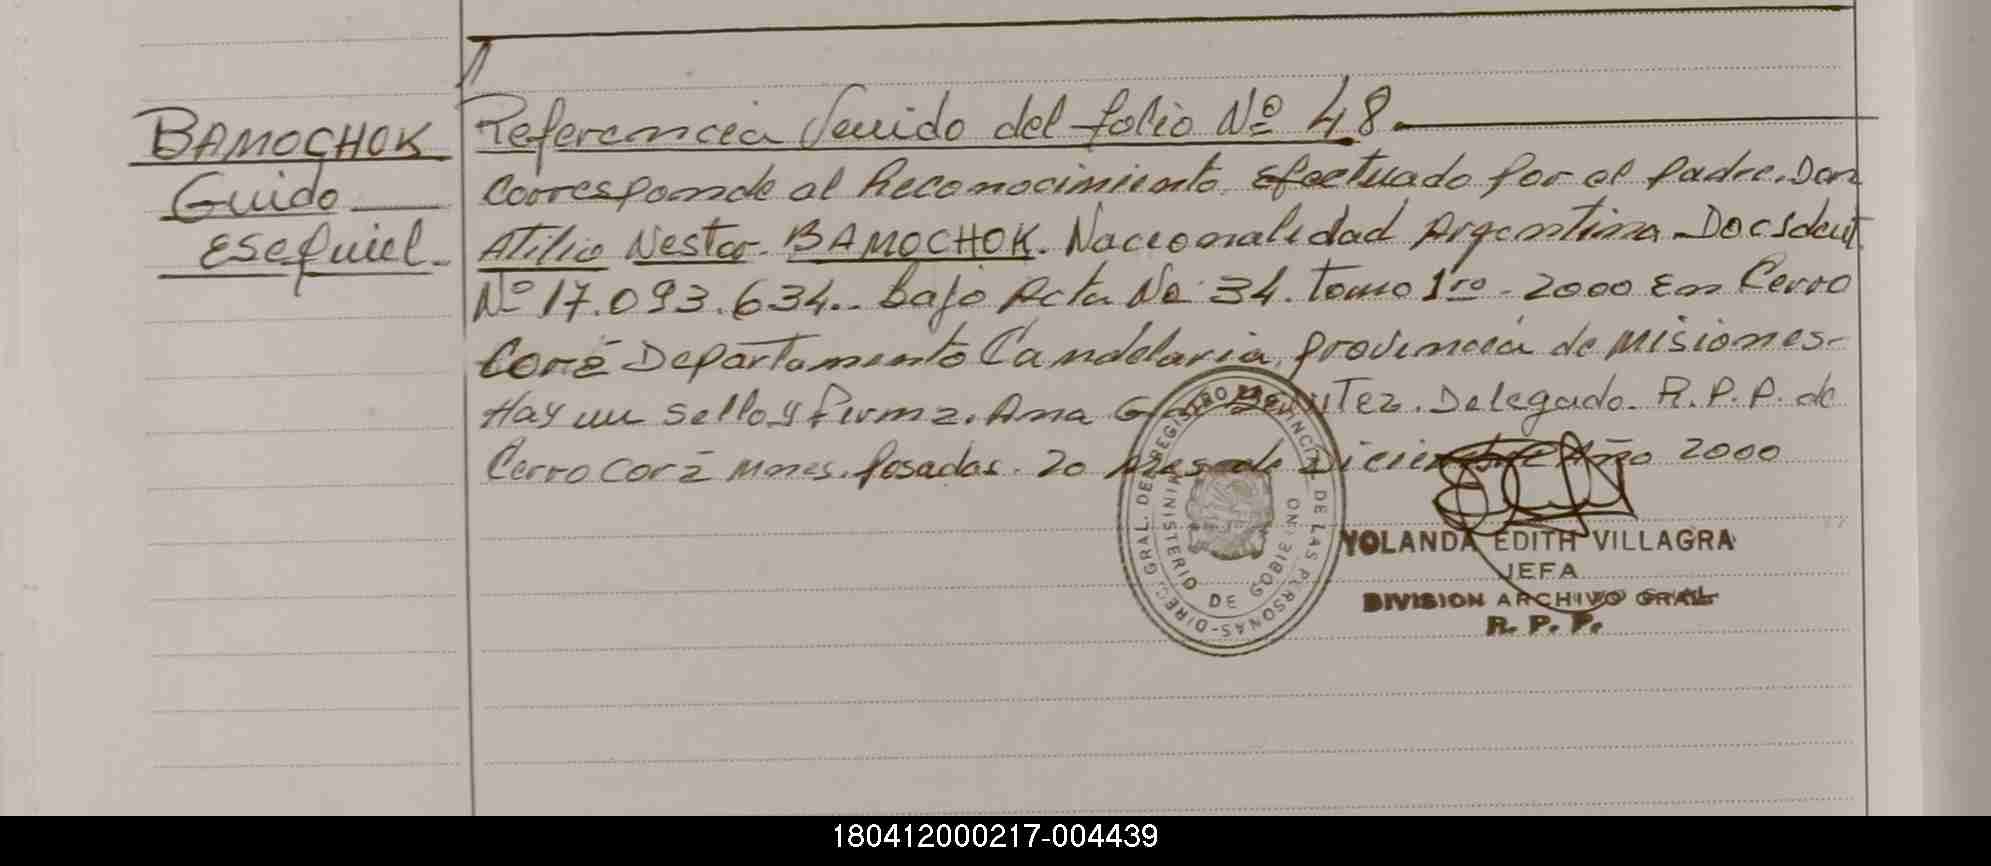 BAMOCHOK
Guido
Esequiel.
Referencia Venido del folio Nº 48.
Corresponde al Reconocimiento. Efectuado por el padre. Don
Atilio Nestor. BAMOCHOK. Nacionalidad Argentina. Doc Ident
Nº 17.093.634.. bajo Acta No 34. Tomo 1ro. 2000 En Cerro
Corá Departamento Candelaria, provincia de Misiones.
Hay un sello y firma. Ana Delegado. R.P.P. de
Cerro Corá Mnes. Posadas. 20 Mes de Diciembre Año 2000
DIREC. GRAL. DEL REGISTRO PROVINCIAL DE LAS PERSONAS-
MINISTERIO DE GOBIERNO
YOLANDA EDITH VILLAGRA
JEFA
DIVISION ARCHIVO GRAL
R. P. P.
180412000217-004439